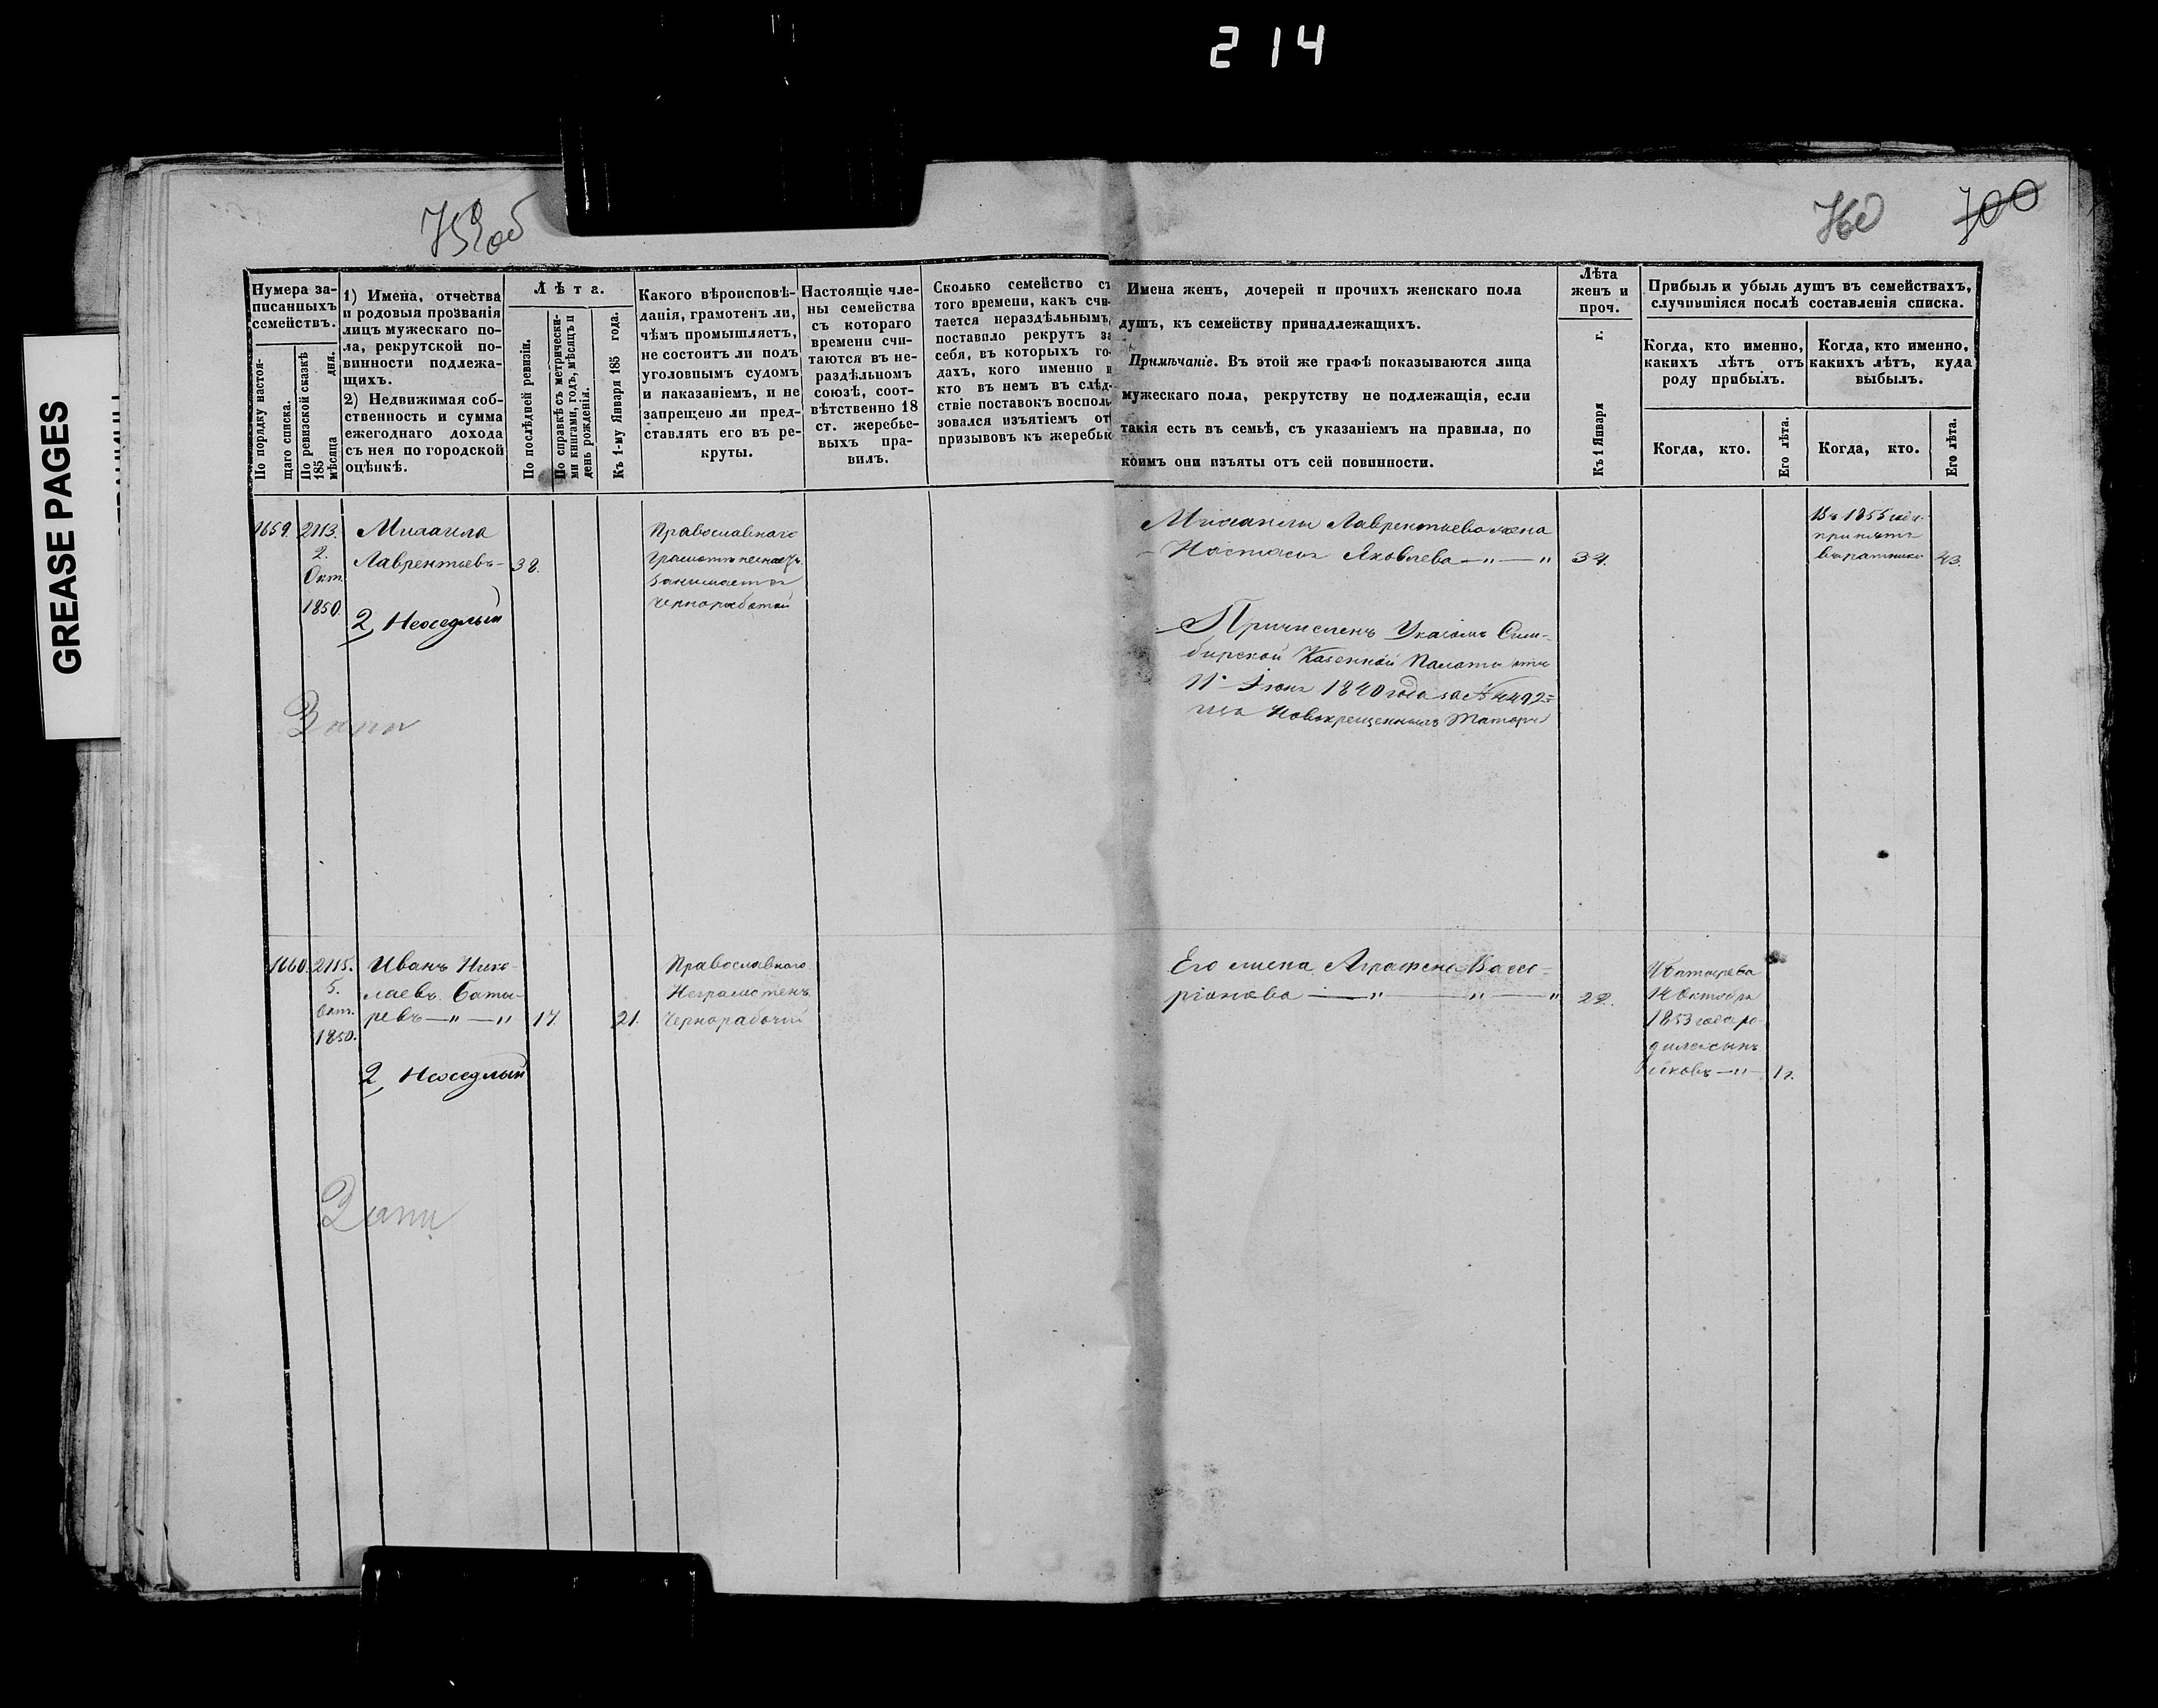 214
759об
760
700
GREASE PAGES
Нумера за-
писанныхъ
семействъ.
По порядку настоя-
щаго списка.
По ревизской сказкѣ
185 мѣсяца дня.
1) Имена, отчества
и родовыя прозванія
лицъ мужескаго по-
ла, рекрутской по-
винности подлежа-
щихъ.
2) Недвижимая соб-
ственность и сумма
ежегоднаго дохода
съ нея по городской
оцѣнкѣ.
Лѣта.
По послѣдней ревизіи.
По справкѣ съ метрически-
ми книгами, годъ, мѣсяцъ и
день рожденія.
Къ 1-му Января 185 года.
Какого вѣроисповѣ-
данія, грамотенъ ли,
чѣмъ промышляетъ,
не состоитъ ли подъ
уголовнымъ судомъ
и наказаніемъ, и не
запрещено ли пред-
ставлять его въ ре-
круты.
Настоящіе чле-
ны семейства
съ котораго
времени счи-
таются въ не-
раздѣльномъ
союзѣ, соот-
вѣтственно 18
ст. жеребье-
выхъ пра-
вилъ.
Сколько семейство съ
того времени, какъ счи-
тается нераздѣльнымъ,
поставило рекрутъ за
себя, въ которыхъ го-
дахъ, кого именно и
кто въ немъ въ слѣд-
ствіе поставокъ восполь-
зовался изъятіемъ отъ
призывовъ къ жеребью
Имена женъ, дочерей и прочихъ женскаго пола
душъ, къ семейству принадлежащихъ.
Примѣчаніе. Въ этой же графѣ показываются лица
мужескаго пола, рекрутству не подлежащія, если
такія есть въ семьѣ, съ указаніемъ на правила, по
коимъ они изъяты отъ сей повинности.
Лѣта
женъ и
проч.
Къ 1 Января г.
Прибыль и убыль душъ въ семействахъ,
случившіяся послѣ составленія списка.
Когда, кто именно,
какихъ лѣтъ отъ
роду прибылъ.
Когда, кто именно,
какихъ лѣтъ, куда
выбылъ.
Когда, кто.
Его лѣта.
Когда, кто.
Его лѣта.
1659. 2113.
2.
Окт.
1850.
Михаила
Лаврентьевъ- 38.
2, Неоседлый
Православнаго
Занимается
Чернработой
Михаилы Лаврентьева жена
Настасья Яковлева —"—" 34.
Причисленъ Указомъ Сим-
бирской Казенной Палаты отъ
11 Іюня 1840 года за № 4492
изъ Новокрещенныхъ Татаръ
Въ 1855 году
принятъ
въ ратники 43.
1660. 2115.
5.
Окт.
1850.
Иванъ Нико-
лаевъ Баты-
ревъ —"—" 17. 21.
2, Неоседлый
Православнаго
Неграмотенъ
Чернорабочій
Его жена Аграфена
—"—"—" 22.
У Батырева
14 Октября
1853 года ро-
дился сынъ
Яковъ —"— 1 г.